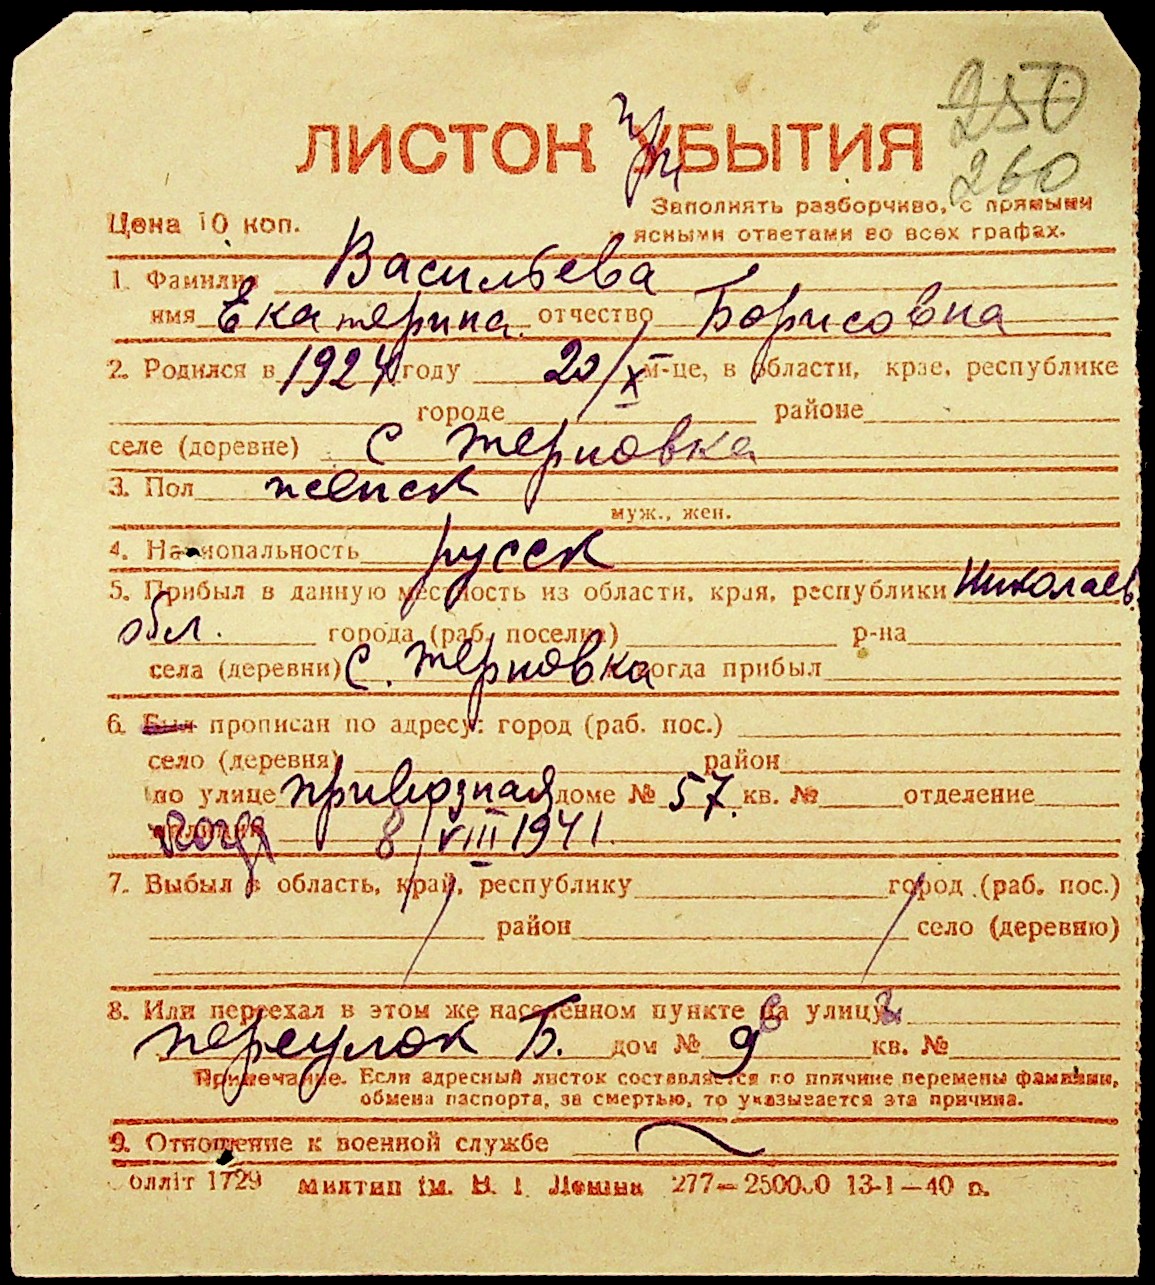 250
260
ЛИСТОК УБЫТИЯ
при
Цена 10 коп.
Заполнять разборчиво, с прямыми
и ясными ответами во всех графах.
1. Фамилия Васильева
имя Екатерина отчество Борисовна
2. Родился в 1924 году 20/X м-це, в области, крае, республике
городе районе
селе (деревне) с Терновка
3. Пол женск
муж., жен.
4. Национальность русск
5. Прибыл в данную местность из области, края, республики Николаев.
обл. города (раб. поселка) р-на
села (деревни) с. Терновка когда прибыл
6. Был прописан по адресу: город (раб. пос.)
село (деревня) район
по улице Привозная доме № 57. кв. № отделение
милиции когда 8/VIII 1941.
7. Выбыл в область, край, республику город (раб. пос.)
район село (деревню)
8. Или переехал в этом же населенном пункте на улицу
переулок Б. дом № 9 кв. №
Примечание. Если адресный листок составляется по причине перемены фамилии,
обмена паспорта, за смертью, то указывается эта причина.
9. Отношение к военной службе
олліт 1729 Миктип ім. В. І. Леніна 277—250000 13-1—40 р.